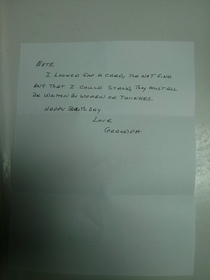 NOTE
I LOOKED FOR A CARD, DID NOT FIND
ANY THAT I COULD STAND, THEY MUST ALL
BE WRITTEN BY WOMEN OR THINKERS.
HAPPY DAY
LOVE
GRANDPA